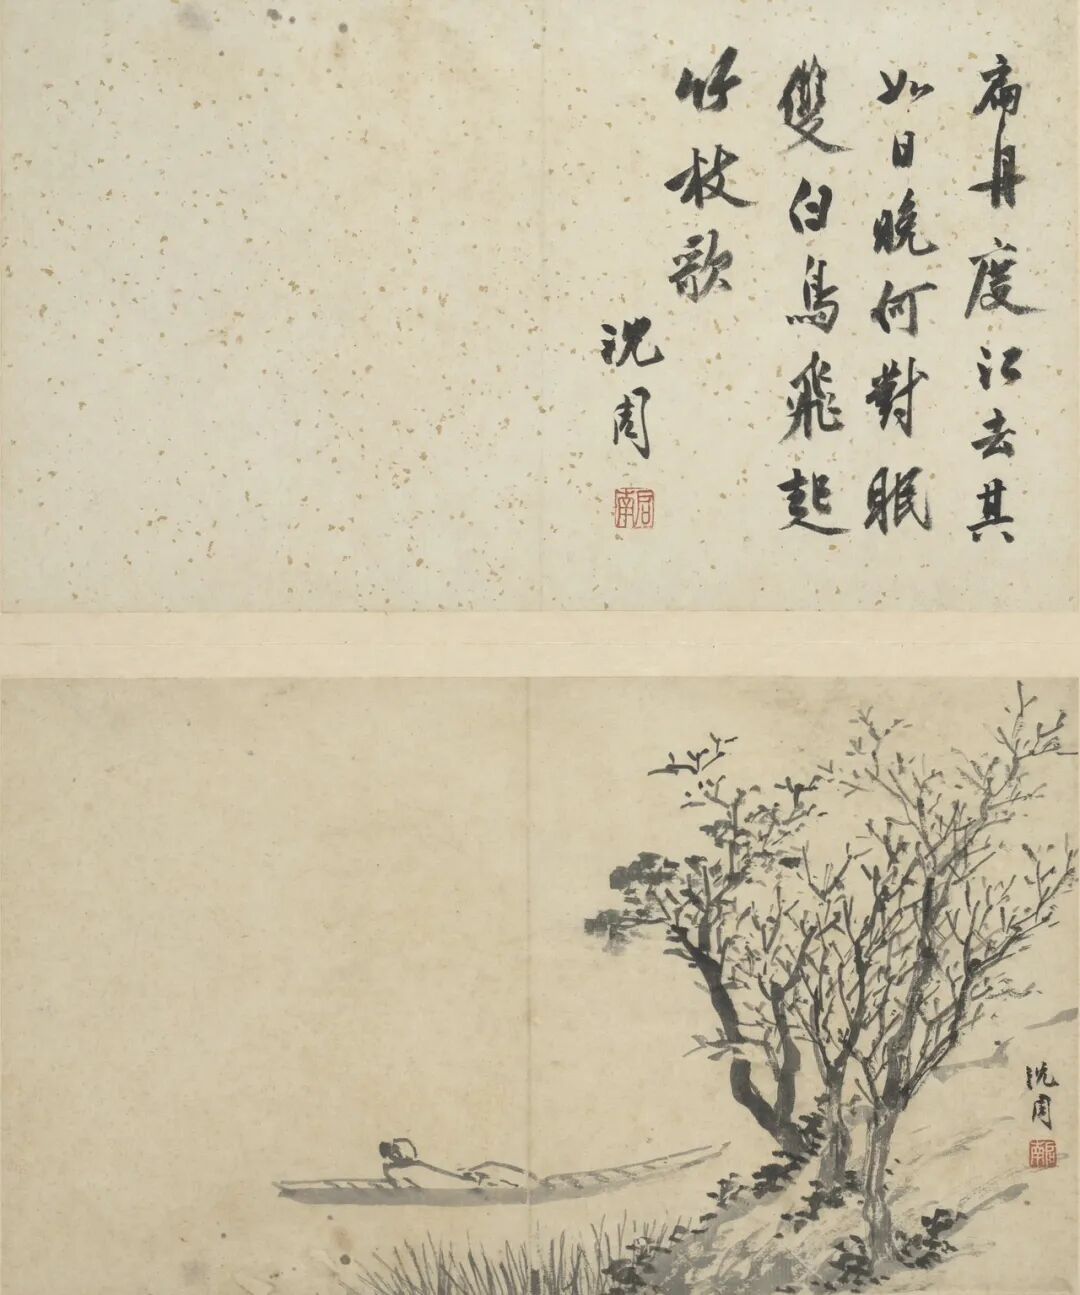 扁舟度江去其
如日晚何對眠
雙白鳥飛起
竹枝歌
沈周
启南
沈周
启南